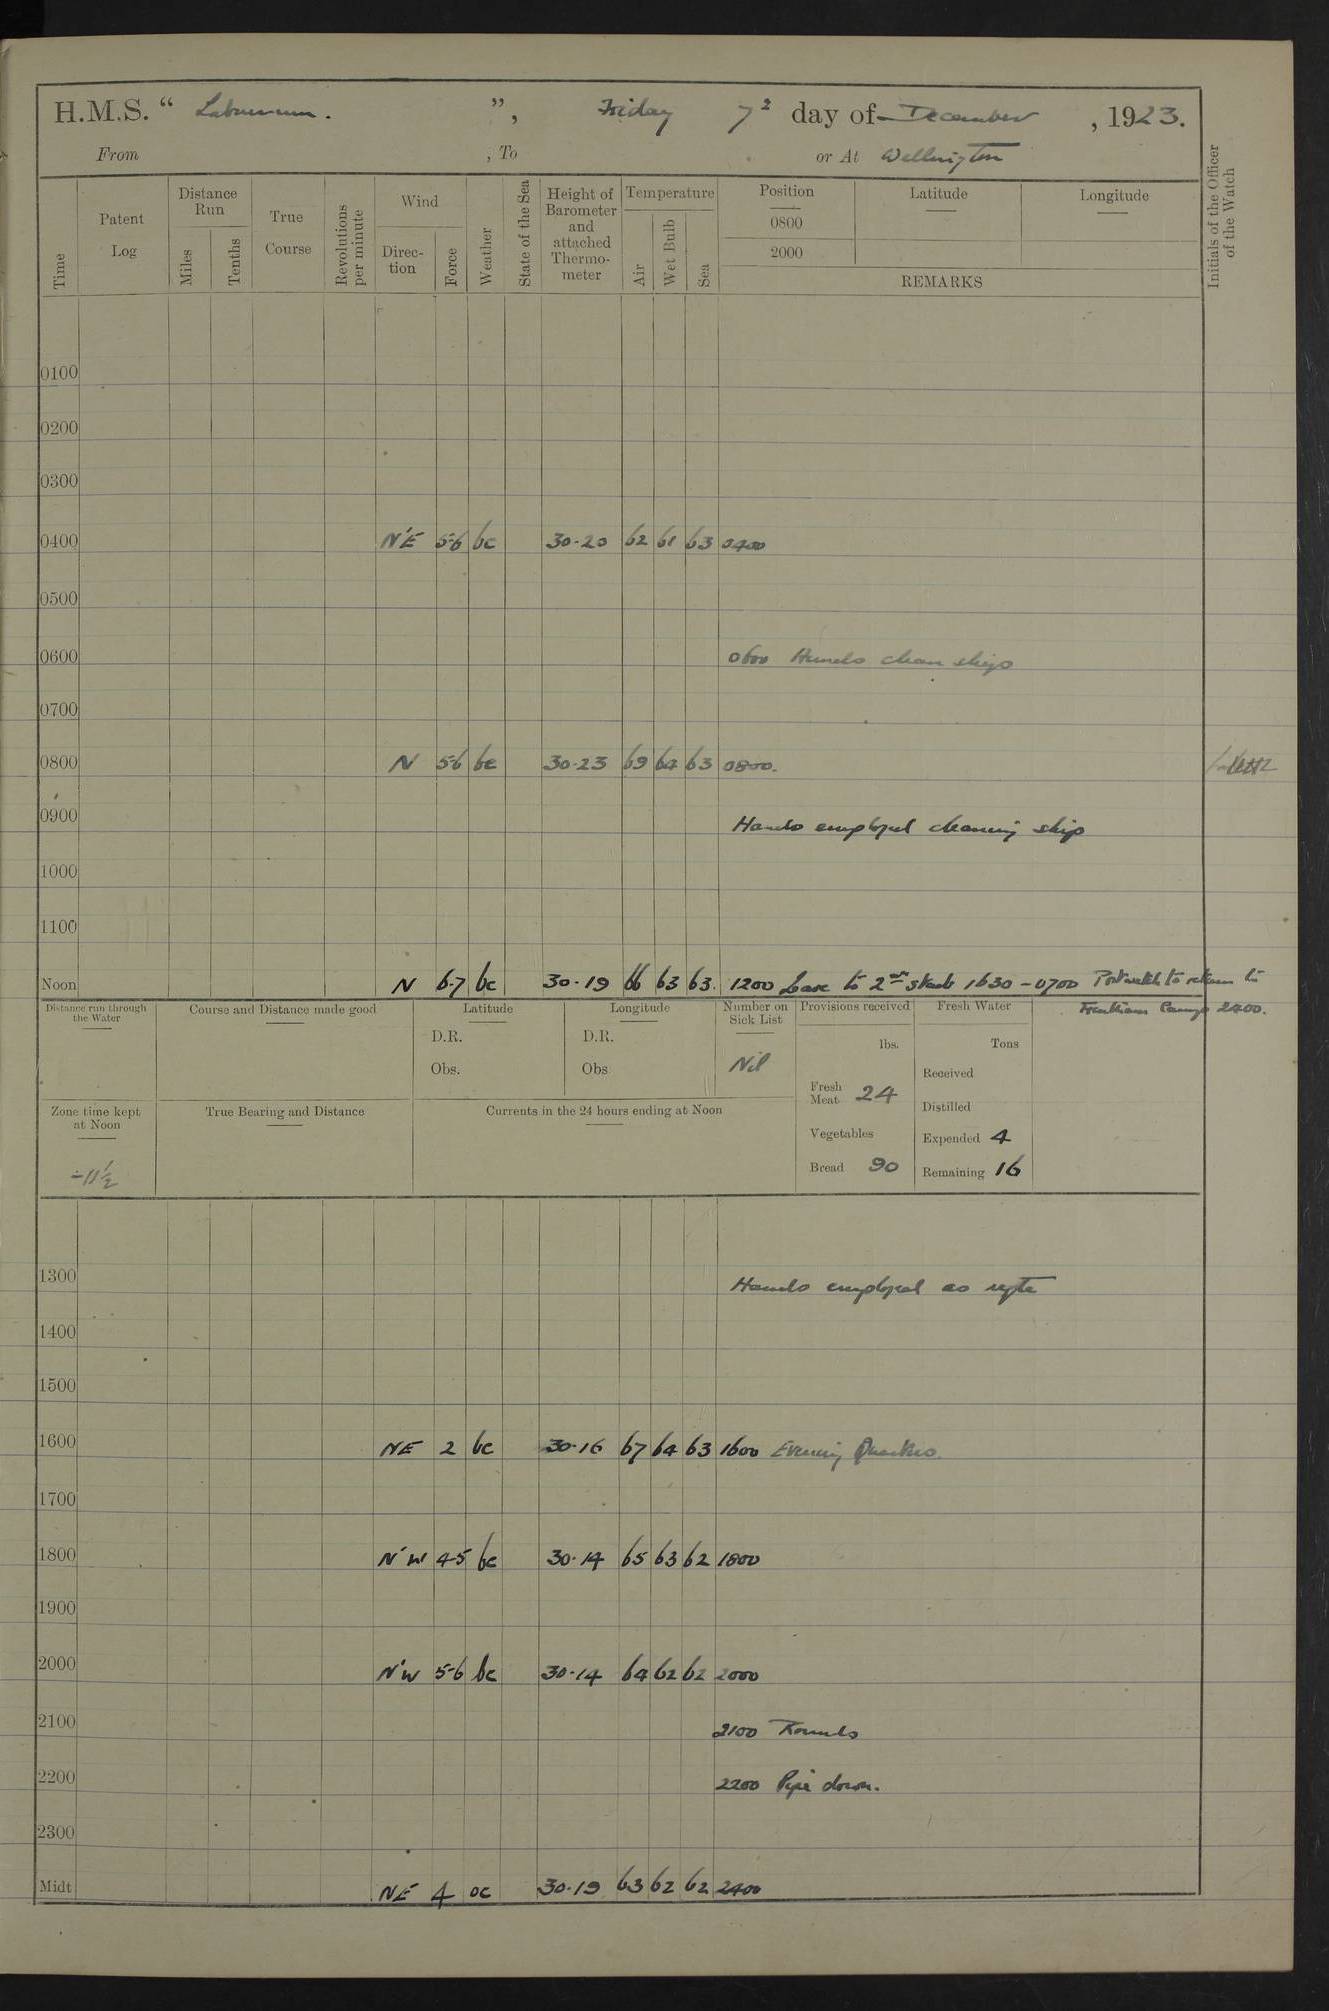 H.M.S. “ Laburnum. ”, Friday 7th day of December, 1923.
From , To or At Wellington
Time
Patent Log
Distance Run
Miles
Tenths
True Course
Revolutions per minute
Wind
Direction
Force
Weather
State of the Sea
Height of Barometer and attached Thermometer
Temperature
Air
Wet Bulb
Sea
Position
0800
2000
Latitude
Longitude
REMARKS
Initials of the Officer of the Watch
0100
0200
0300
0400 N'E 5-6 bc 30-20 62 61 63 0400
0500
0600 0600 Hands clean ship
0700
0800 N 5-6 bc 30-23 69 64 63 0800.
0900 Hands employed cleaning ship
1000
1100
Noon N 6-7 bc 30-19 66 63 63. 1200 Leave to 2nd 1630 - 0700 Port watch to return to
2400.
Distance run through the Water
Course and Distance made good
Latitude
D.R.
Obs.
Longitude
D.R.
Obs
Number on Sick List
Nil
Provisions received
lbs.
Fresh Meat 24
Vegetables
Bread 90
Fresh Water
Tons
Received
Distilled
Expended 4
Remaining 16
Zone time kept at Noon
-11½
True Bearing and Distance
Currents in the 24 hours ending at Noon
1300 Hands employed as reqte
1400
1500
1600 NE 2 bc 30-16 67 64 63 1600 Evening Quarters.
1700
1800 N'W 4-5 bc 30-14 65 63 62 1800
1900
2000 N'W 5-6 bc 30-14 64 62 62 2000
2100 2100 Rounds
2200 2200 Pipe down.
2300
Midt NE 4 oc 30-19 63 62 62 2400